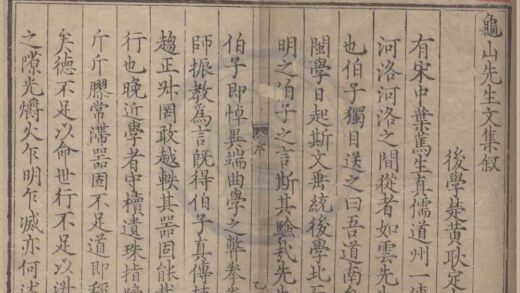 龜山先生文集叙
後學楚黃耿定
有宋中葉篤生真儒道州一
河洛河洛之間從者如雲先
也伯子獨目送之曰吾道南
閩學日起斯文垂統後學比
明之伯子之言斯其驗哉先
序
伯子即悼異端曲學之弊拳
師振教為言既得伯子真傳
趨正㫖罔敢越軼其器固能
行也晚近學者守櫝遺珠指
斤斤膠常滯器固不足道即稱
矣德不足以命世行不足以
之隙光爝火乍明乍滅亦何述